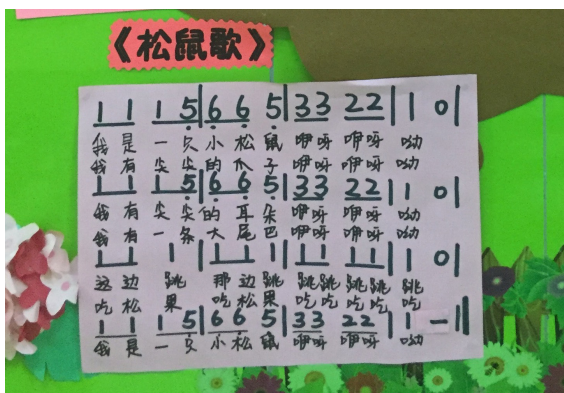 《松鼠歌》
1 1 1 5 | 6 6 5 | 3 3 2 2 | 1 0 |
我是一只小松鼠咿呀咿呀呦
我有尖尖的爪子咿呀咿呀呦
1 1 1 5 | 6 6 5 | 3 3 2 2 | 1 0 |
我有尖尖的耳朵咿呀咿呀呦
我有一条大尾巴咿呀咿呀呦
1 1 1 | 1 1 1 | 1 1 1 1 | 1 0 |
这边跳那边跳跳跳跳跳跳
吃松果吃松果吃吃吃吃吃
1 1 1 5 | 6 6 5 | 3 3 2 2 | 1 - ‖
我是一只小松鼠咿呀咿呀呦